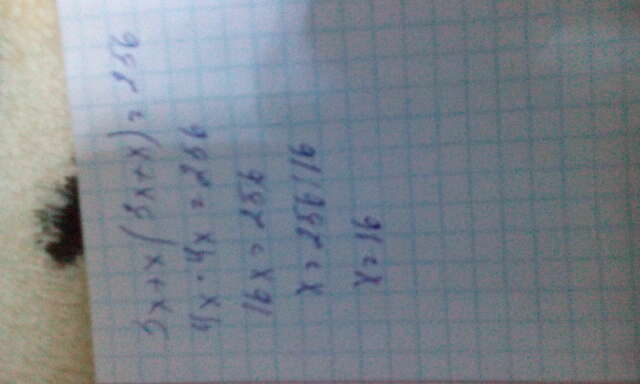 3x+x(3x+x)=256
4x·4x=256
16x=256
x=256/16
x=16